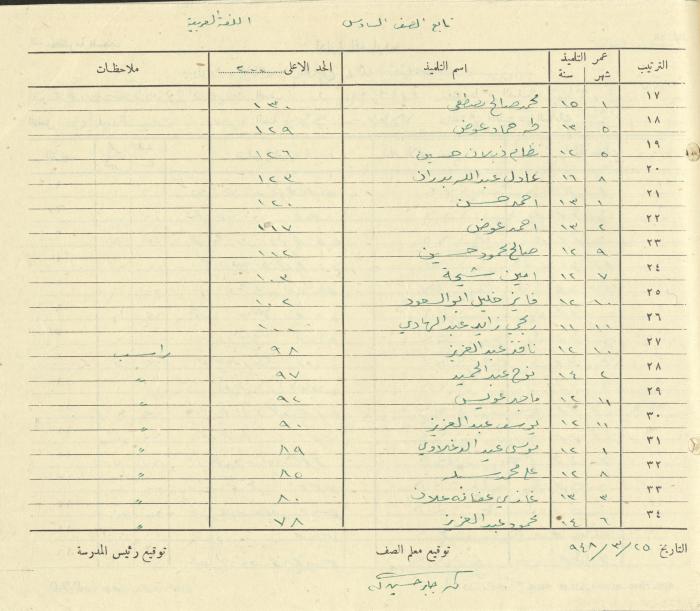 تابع الصف السادس اللغة العربية
الترتيب عمر التلميذ شهر سنة اسم التلميذ الحد الاعلى ٢٠٠ ملاحظات
١٧ ١ ١٥ محمد صالح مصطفى ١٣٠
١٨ ٥ ١٣ طه حماد عوض ١٢٩
١٩ ٥ ١٢ نظام ذيبان حسين ١٢٦
٢٠ ٨ ١١ عادل عبدالله بدران ١٢٣
٢١ ١ ١٣ احمد حسن ١٢٠
٢٢ ٢ ١٣ احمد عوض ١١٧
٢٣ ٩ ١٢ صالح محمود حسين ١١٢
٢٤ ٧ ١٢ امين شيحة ١٠٣
٢٥ ١٠ ١٢ فايز خليل ابو السعود ١٠٢
٢٦ ١١ ١١ ربحي زايد عبد الهادي ١٠٠
٢٧ ١٠ ١٢ نافذ عبد العزيز ٩٨ راسب
٢٨ ٢ ١٤ نوح عبد الحميد ٩٧ "
٢٩ ١١ ١٢ ماجد عويس ٩٢ "
٣٠ ١١ ١٢ يوسف عبد العزيز ٩٠ "
٣١ ١ ١٢ موسى عيد ٨٩ "
٣٢ ٨ ١٢ علي محمد ٨٥ "
٣٣ ٣ ١٣ غازي عفانه علان ٨٠ "
٣٤ ٦ ١٤ محمود عبد العزيز ٧٨ "
التاريخ ٩٤٨/٣/٢٥ توقيع معلم الصف توقيع رئيس المدرسة
جابر حسين